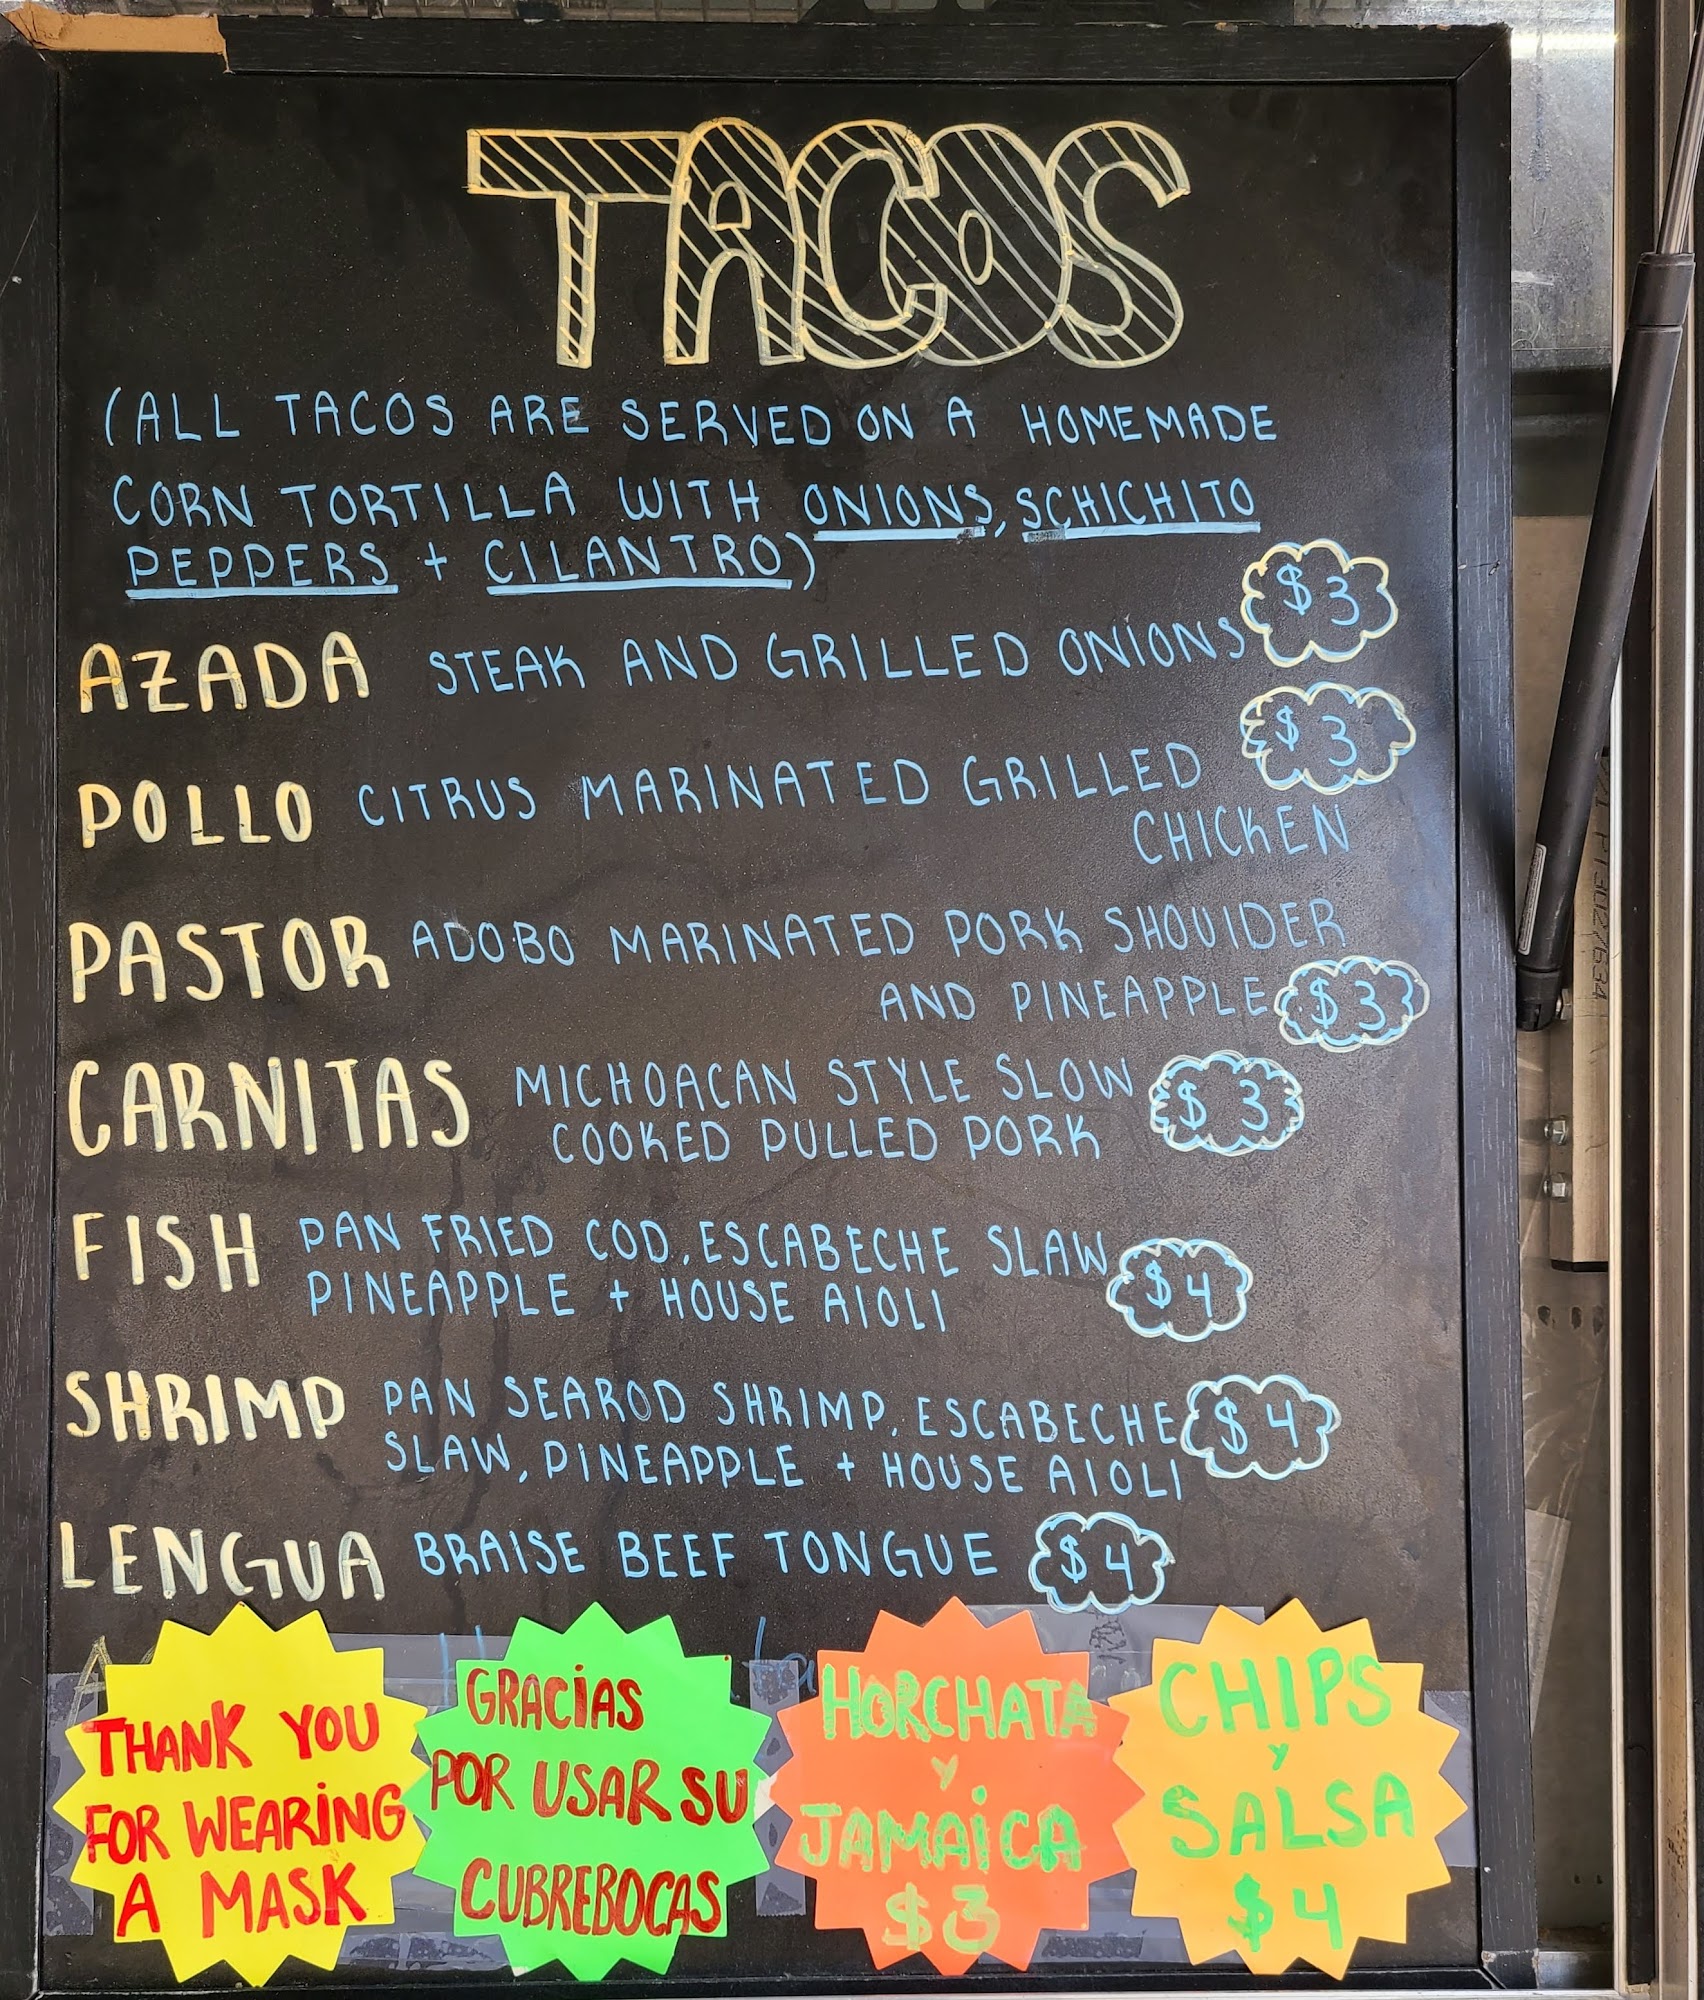 TACOS
(ALL TACOS ARE SERVED ON A HOMEMADE
CORN TORTILLA WITH ONIONS, SCHICHITO
PEPPERS + CILANTRO)
AZADA STEAK AND GRILLED ONIONS $3
POLLO CITRUS MARINATED GRILLED $3
CHICKEN
PASTOR ADOBO MARINATED PORK SHOULDER
AND PINEAPPLE $3
CARNITAS MICHOACAN STYLE SLOW $3
COOKED PULLED PORK
FISH PAN FRIED COD, ESCABECHE SLAW $4
PINEAPPLE + HOUSE AIOLI
SHRIMP PAN SEAROD SHRIMP, ESCABECHE $4
SLAW, PINEAPPLE + HOUSE AIOLI
LENGUA BRAISE BEEF TONGUE $4
THANK YOU
FOR WEARING
A MASK
GRACIAS
POR USAR SU
CUBREBOCAS
HORCHATA
Y
JAMAICA
$3
CHIPS
Y
SALSA
$4